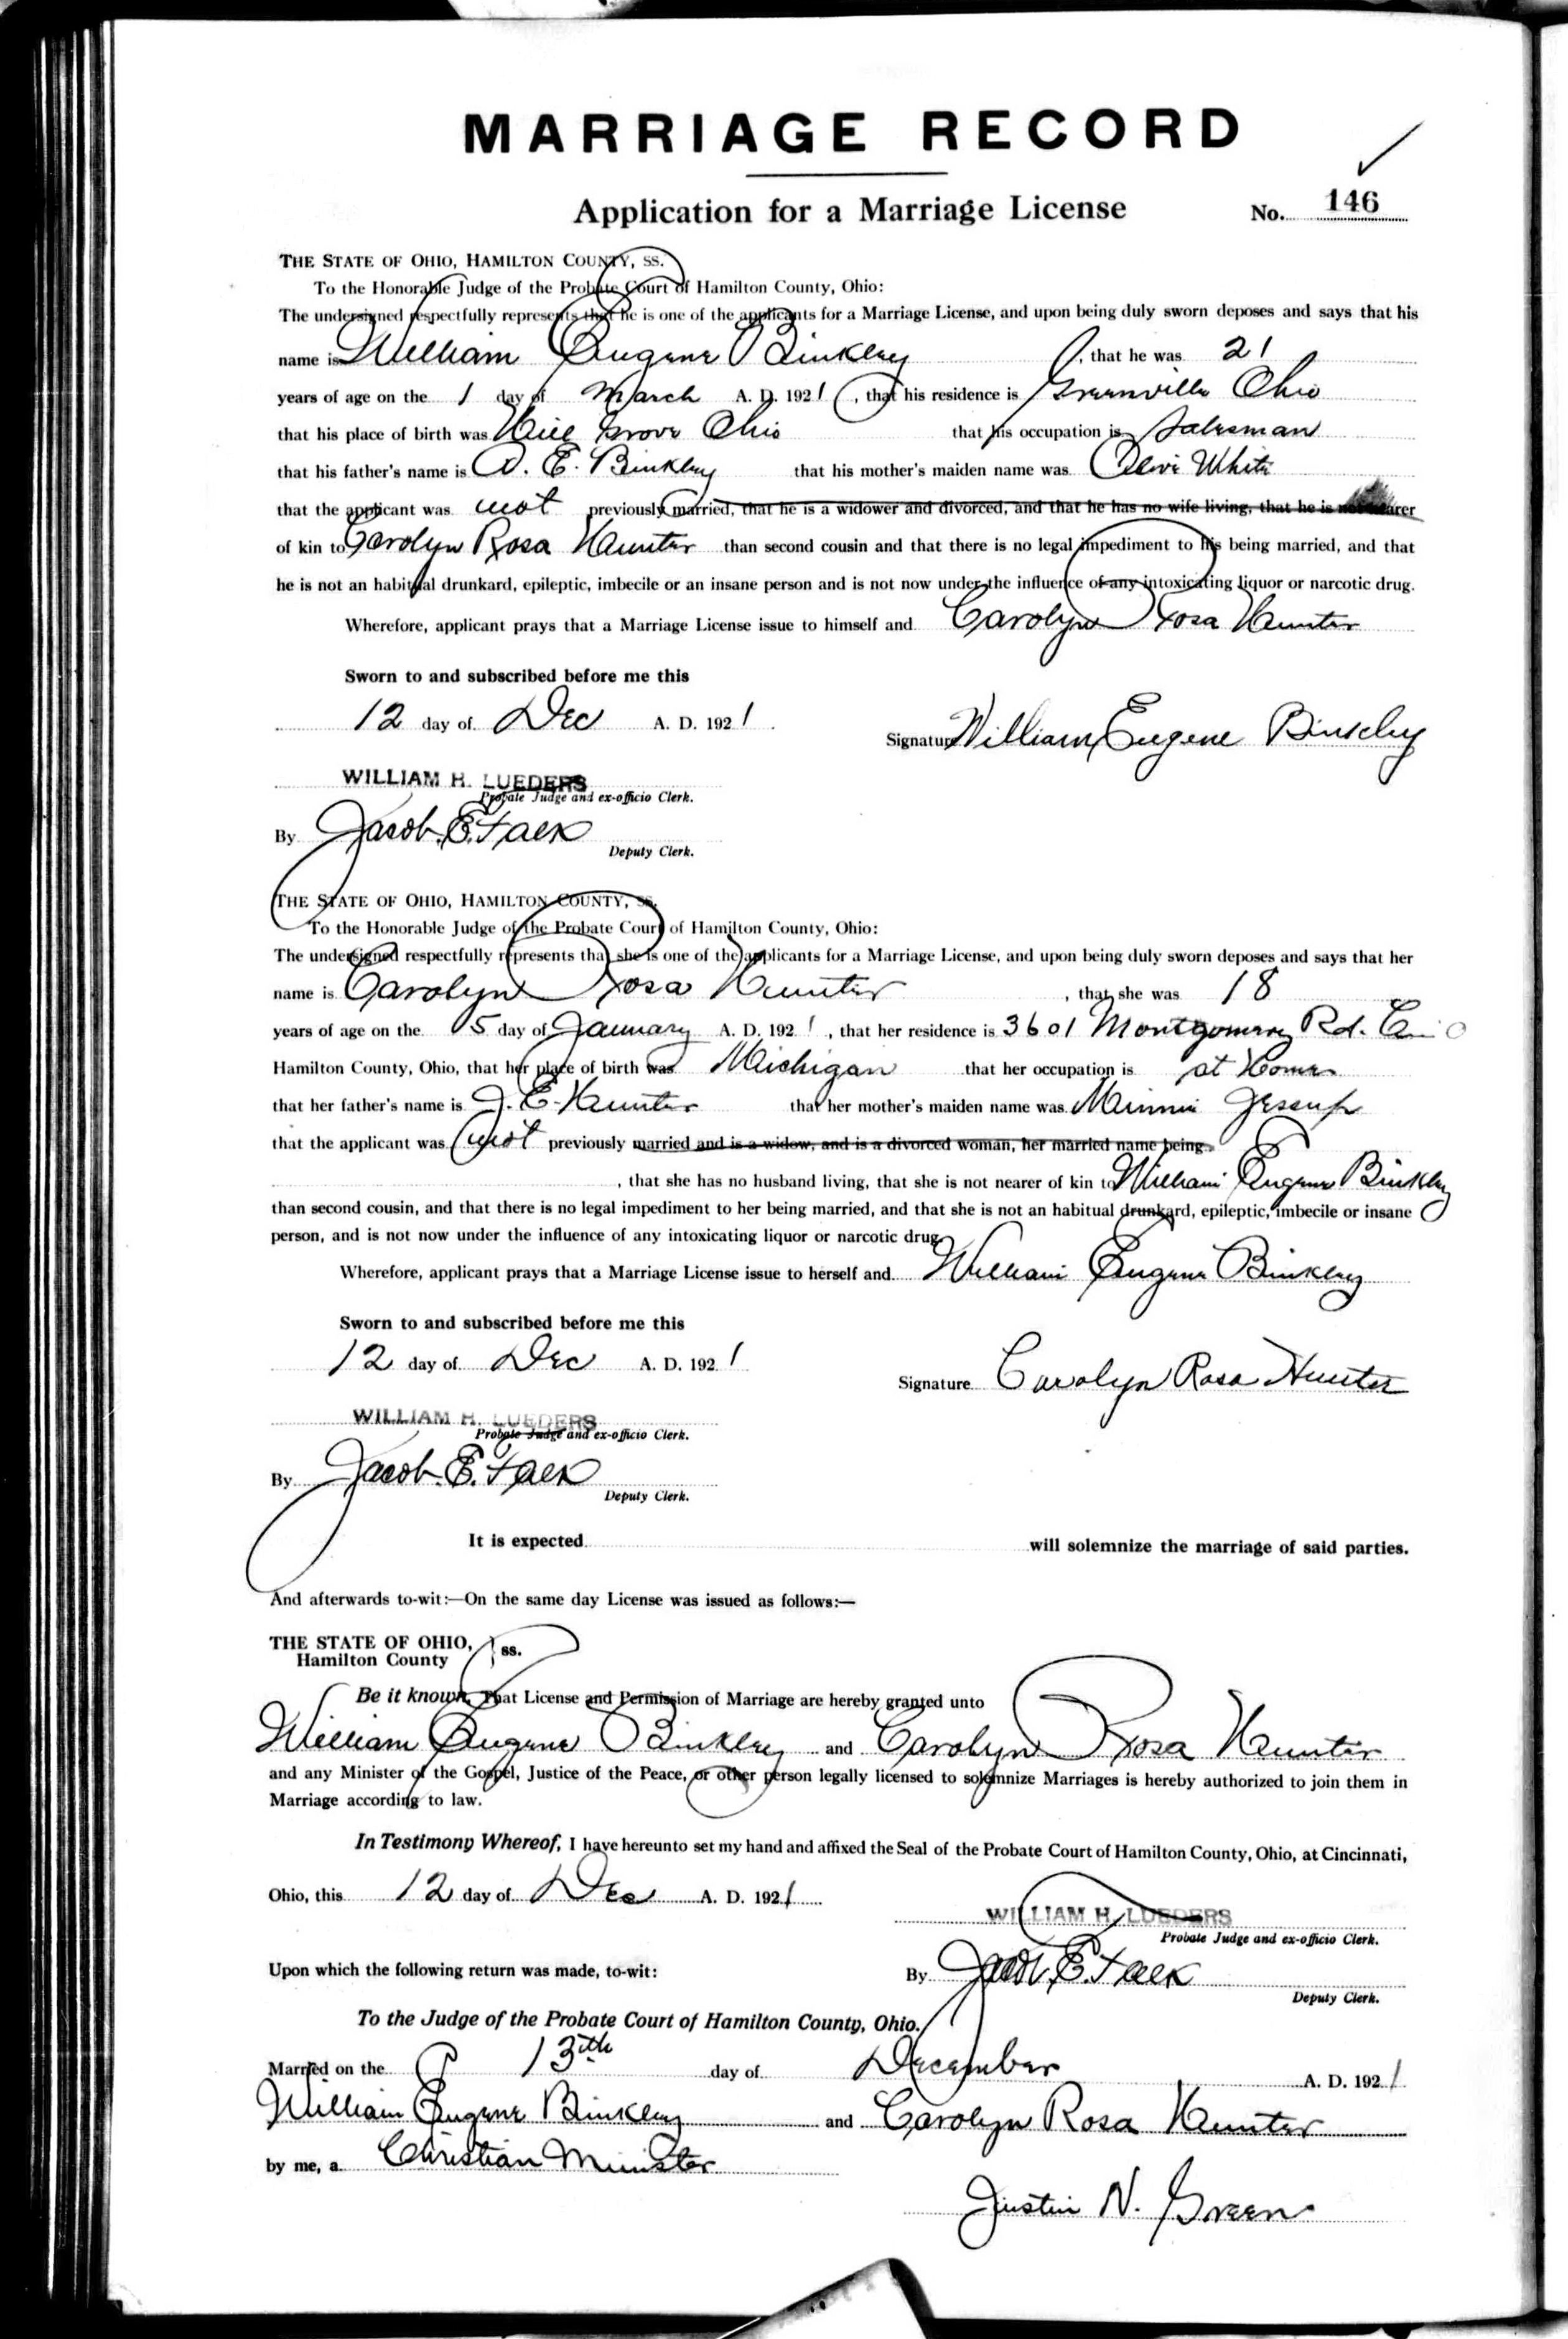 MARRIAGE RECORD
Application for a Marriage License No. 146
THE STATE OF OHIO, HAMILTON COUNTY, SS.
To the Honorable Judge of the Probate Court of Hamilton County, Ohio:
The undersigned respectfully represents that he is one of the applicants for a Marriage License, and upon being duly sworn deposes and says that his
name is William Eugene Binkley, that he was 21
years of age on the 1 day of March A. D. 1921, that his residence is Greenville Ohio
that his place of birth was Hill Grove Ohio that his occupation is Salesman
that his father's name is E. Binkley that his mother's maiden name was White
that the applicant was not previously married, that he is a widower and divorced, and that he has no wife living, that he is not nearer
of kin to Carolyn Rosa Hunter than second cousin and that there is no legal impediment to his being married, and that
he is not an habitual drunkard, epileptic, imbecile or an insane person and is not now under the influence of any intoxicating liquor or narcotic drug.
Wherefore, applicant prays that a Marriage License issue to himself and Carolyn Rosa Hunter
Sworn to and subscribed before me this
12 day of Dec A. D. 1921.
Signature William Eugene Binkley
WILLIAM H. LUEDERS
Probate Judge and ex-officio Clerk.
By Jacob E. Falk
Deputy Clerk.
THE STATE OF OHIO, HAMILTON COUNTY, SS.
To the Honorable Judge of the Probate Court of Hamilton County, Ohio:
The undersigned respectfully represents that she is one of the applicants for a Marriage License, and upon being duly sworn deposes and says that her
name is Carolyn Rosa Hunter, that she was 18
years of age on the 5 day of January A. D. 1921, that her residence is 3601 Montgomery Rd.
Hamilton County, Ohio, that her place of birth was Michigan that her occupation is at Home
that her father's name is J. E. Hunter that her mother's maiden name was Minnie Jessup
that the applicant was not previously married and is a widow, and is a divorced woman, her married name being
, that she has no husband living, that she is not nearer of kin to William Eugene Binkley
than second cousin, and that there is no legal impediment to her being married, and that she is not an habitual drunkard, epileptic, imbecile or insane
person, and is not now under the influence of any intoxicating liquor or narcotic drug.
Wherefore, applicant prays that a Marriage License issue to herself and William Eugene Binkley
Sworn to and subscribed before me this
12 day of Dec A. D. 1921
Signature Carolyn Rosa Hunter
WILLIAM H. LUEDERS
Probate Judge and ex-officio Clerk.
By Jacob E. Falk
Deputy Clerk.
It is expected will solemnize the marriage of said parties.
And afterwards to-wit:—On the same day License was issued as follows:—
THE STATE OF OHIO, } ss.
Hamilton County
Be it known, That License and Permission of Marriage are hereby granted unto
William Eugene Binkley and Carolyn Rosa Hunter
and any Minister of the Gospel, Justice of the Peace, or other person legally licensed to solemnize Marriages is hereby authorized to join them in
Marriage according to law.
In Testimony Whereof, I have hereunto set my hand and affixed the Seal of the Probate Court of Hamilton County, Ohio, at Cincinnati,
Ohio, this 12 day of Dec A. D. 1921
WILLIAM H. LUEDERS
Probate Judge and ex-officio Clerk.
Upon which the following return was made, to-wit:
By Jacob E. Falk
Deputy Clerk.
To the Judge of the Probate Court of Hamilton County, Ohio.
Married on the 13th day of December A. D. 1921
William Eugene Binkley and Carolyn Rosa Hunter
by me, a Christian Minister
Justin N. Green